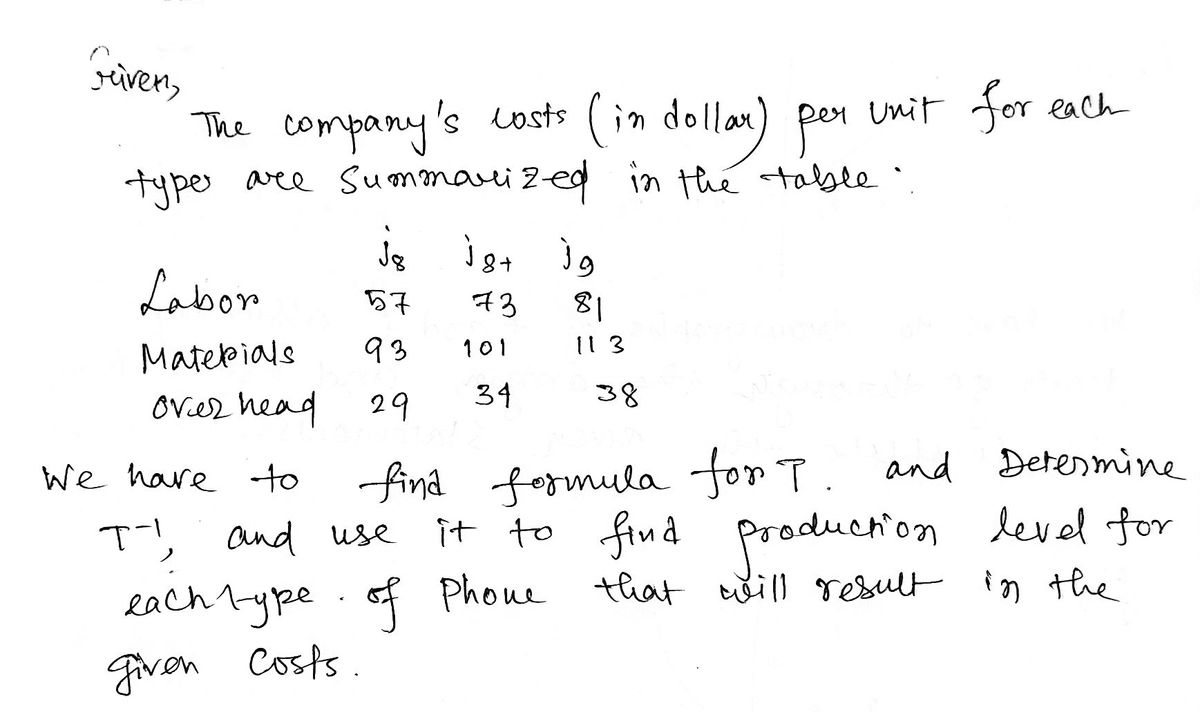 Given,
The company's costs (in dollar) per unit for each
type are summarized in the table:
j8 j8+ j9
Labor 57 73 81
Materials 93 101 113
overhead 29 34 38
We have to find formula for T. and Determine
T-1, and use it to find production level for
each type. of Phone that will result in the
given Costs.